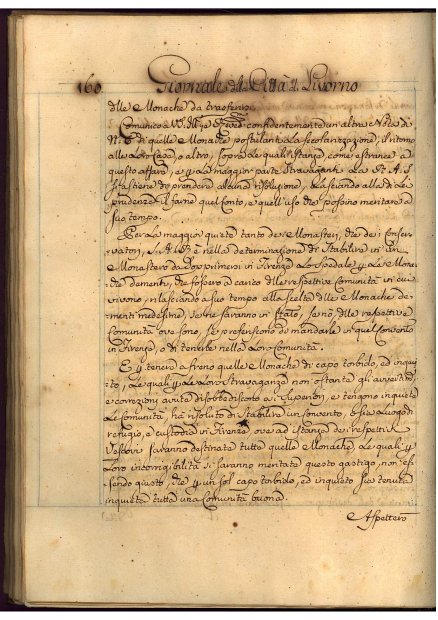 160 Giornale della Città di Livorno
delle Monache da trasferirsi.
Comunico a V. S. Ill. confidentemente un altra Nota di
N. di quelle Monache postulanti la secolarizzazione, il ritorno
alle Loro Case, o altro, sopra le quali istanze, come estranee a
questo affare, e per la maggior parte stravaganti La R. A. S.
si astiene da prendere alcuna risoluzione, Lasciando alla di Lei
prudenza il farne quel conto, e quell'uso che possino meritare a
suo tempo.
Per la maggior quiete tanto dei Monasteri, che dei Conser-
vatorj, S. A. R. è nella determinazione di stabilire in un
Monastero da sopprimersi in Firenze Lo Spedale per le Mona-
che dementi, che fossero a carico delle respettive Comunità in cui
vivono, rilasciando a suo tempo alla scelta delle Monache de-
menti medesime, se ne saranno in stato, se nò delle respettive
Comunità ove sono, se preferiscono di mandarle in quel Convento
in Firenze, o di tenerle nella Loro Comunità.
E per tenere a freno quelle Monache di capo torbido, ed inquie-
to, Le quali per le Loro Stravaganze non ostante gli avvertimenti
e correzioni avute disobbediscono ai Superiori, e tengono inquiete
Le Comunità, ha risoluto di stabilire un Convento, o sia Luogo di
refugio, e custodia in Firenze ove ad istanza dei respettivi
Vescovi saranno destinate tutte quelle Monache, Le quali per
Loro incorrigibilità si saranno meritate questo gastigo, non es-
sendo giusto, che per un sol capo torbido, ed inquieto sia tenuta
inquieta tutta una Comunità buona.
Aspetterò